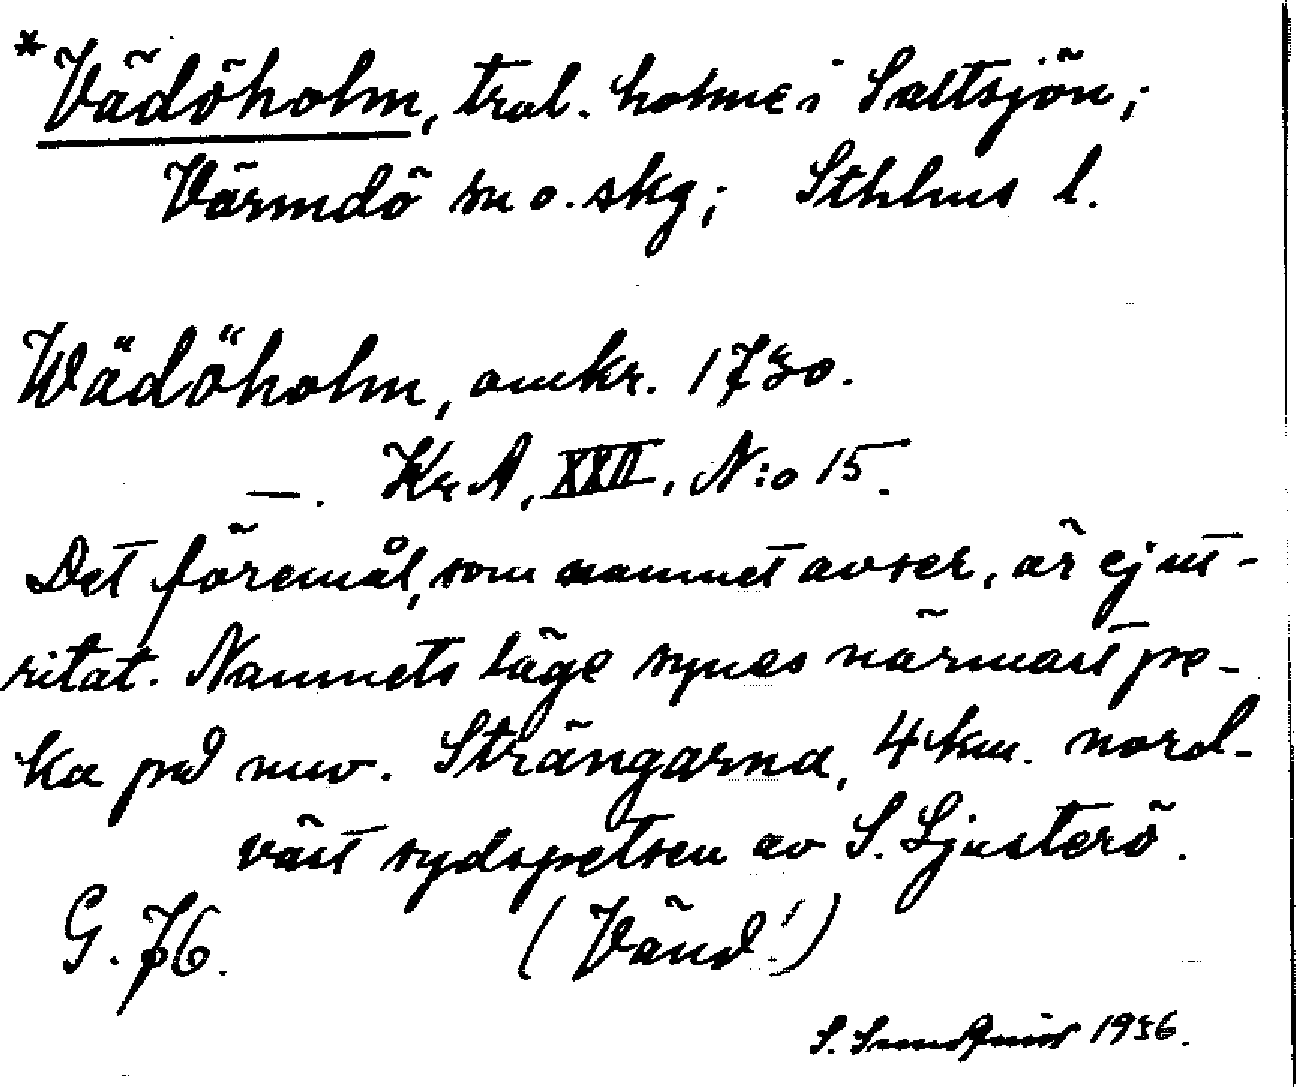 *Vädöholm, trol. holme i Saltsjön;
Värmdö sn o. skg; Sthlms l.
Wädöholm, omkr. 1730.
—. KrA, XXII, N:o 15.
Det föremål, som namnet avser, är ej ut-
ritat. Namnets läge synes närmast pe-
ka på nuv. Strängarna, 4 km. nord-
väst sydspetsen av S. Ljusterö.
G. 76. (Vänd!)
S. 1936.